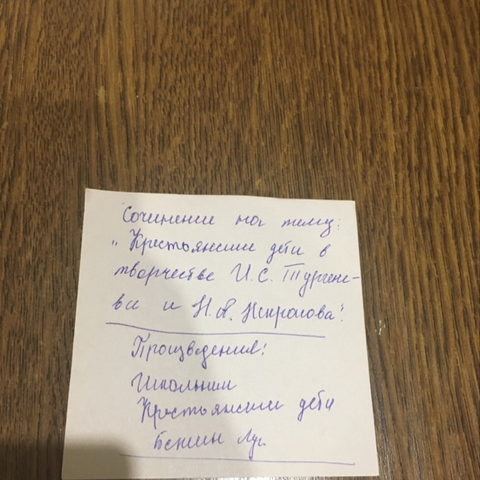 Сочинение на тему:
"Крестьянские дети в
творчестве И.С. Тургене-
ва и Н.А. Некрасова".
Произведения:
Школьник
Крестьянские дети
Бежин луг.